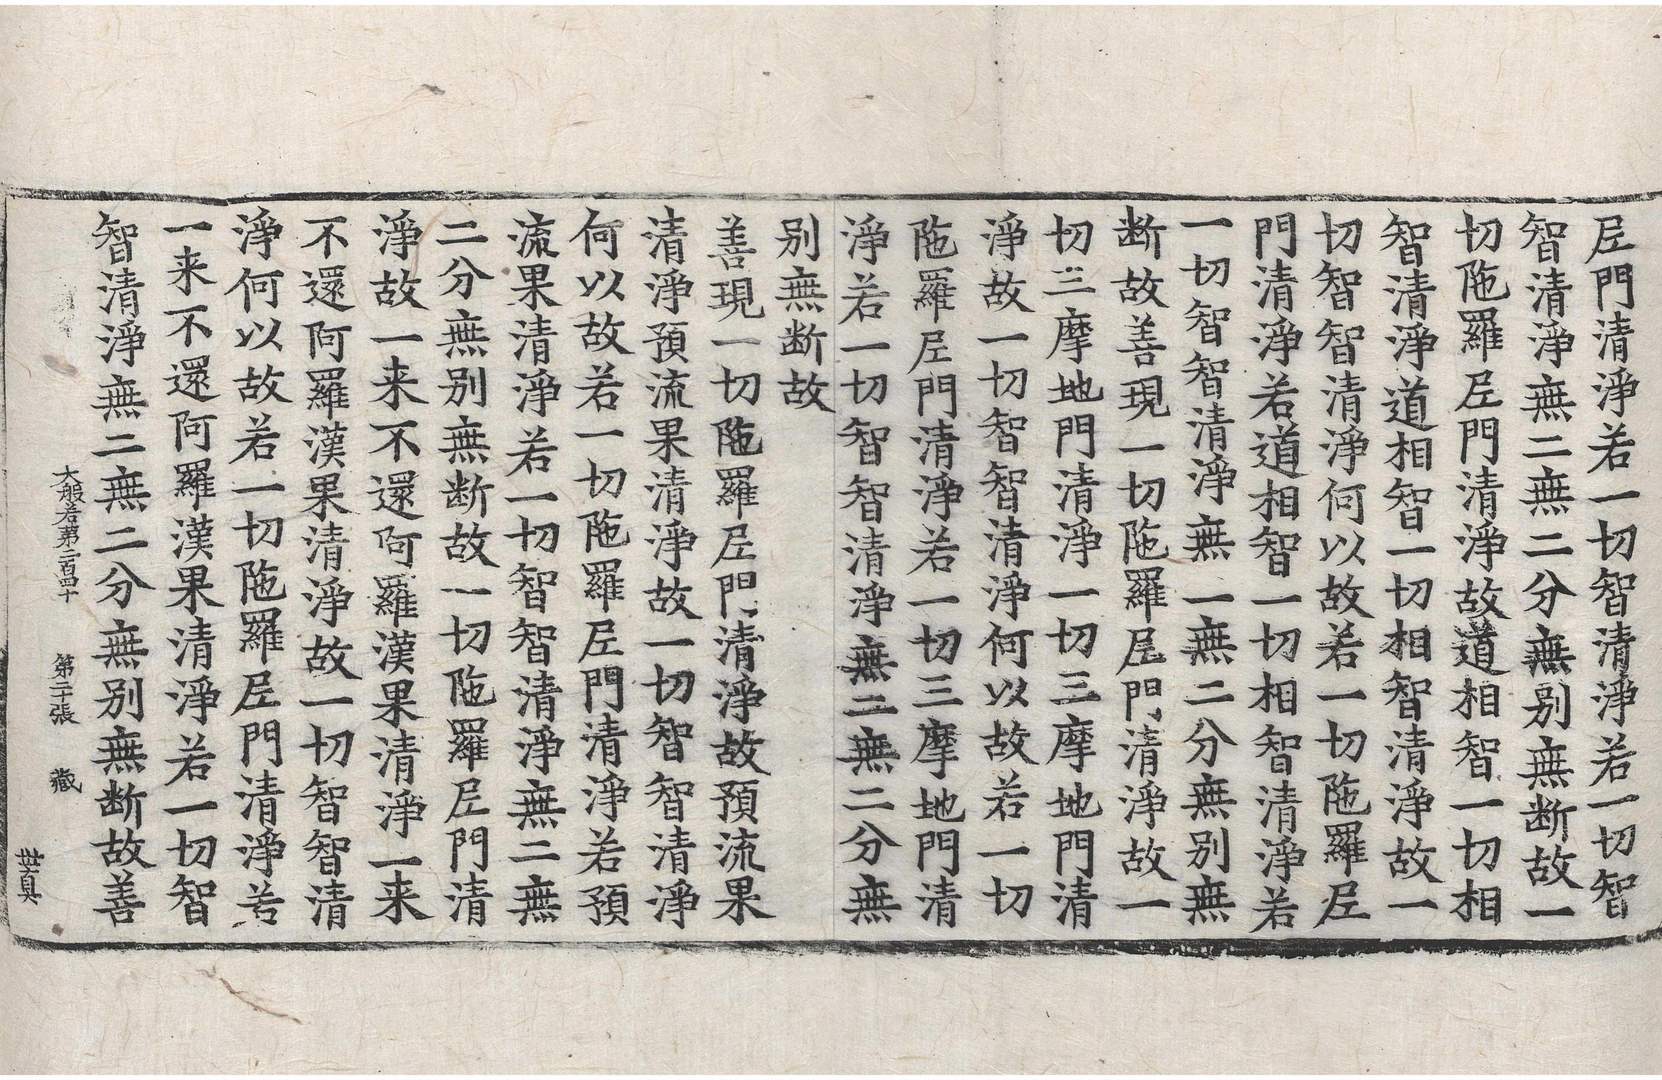 𡰱門清淨若一切智清淨若一切智
智清淨無二無二分無别無断故一
切陁羅𡰱門清淨故道相智一切相
智清淨道相智一切相智清淨故一
切智智清淨何以故若一切陁羅𡰱
門清淨若道相智一切相智清淨若
一切智智清淨無二無二分無别無
断故善現一切陁羅𡰱門清淨故一
切三摩地門清淨一切三摩地門清
淨故一切智智清淨何以故若一切
陁羅𡰱門清淨若一切三摩地門清
淨若一切智智清淨無二無二分無
别無断故
善現一切陁羅𡰱門清淨故預流果
清淨預流果清淨故一切智智清淨
何以故若一切陁羅𡰱門清淨若預
流果清淨若一切智智清淨無二無
二分無别無断故一切陁羅𡰱門清
淨故一来不還阿羅漢果清淨一来
不還阿羅漢果清淨故一切智智清
淨何以故若一切陁羅𡰱門清淨若
一来不還阿羅漢果清淨若一切智
智清淨無二無二分無别無断故善
大般若第二百四十 第二十張 藏